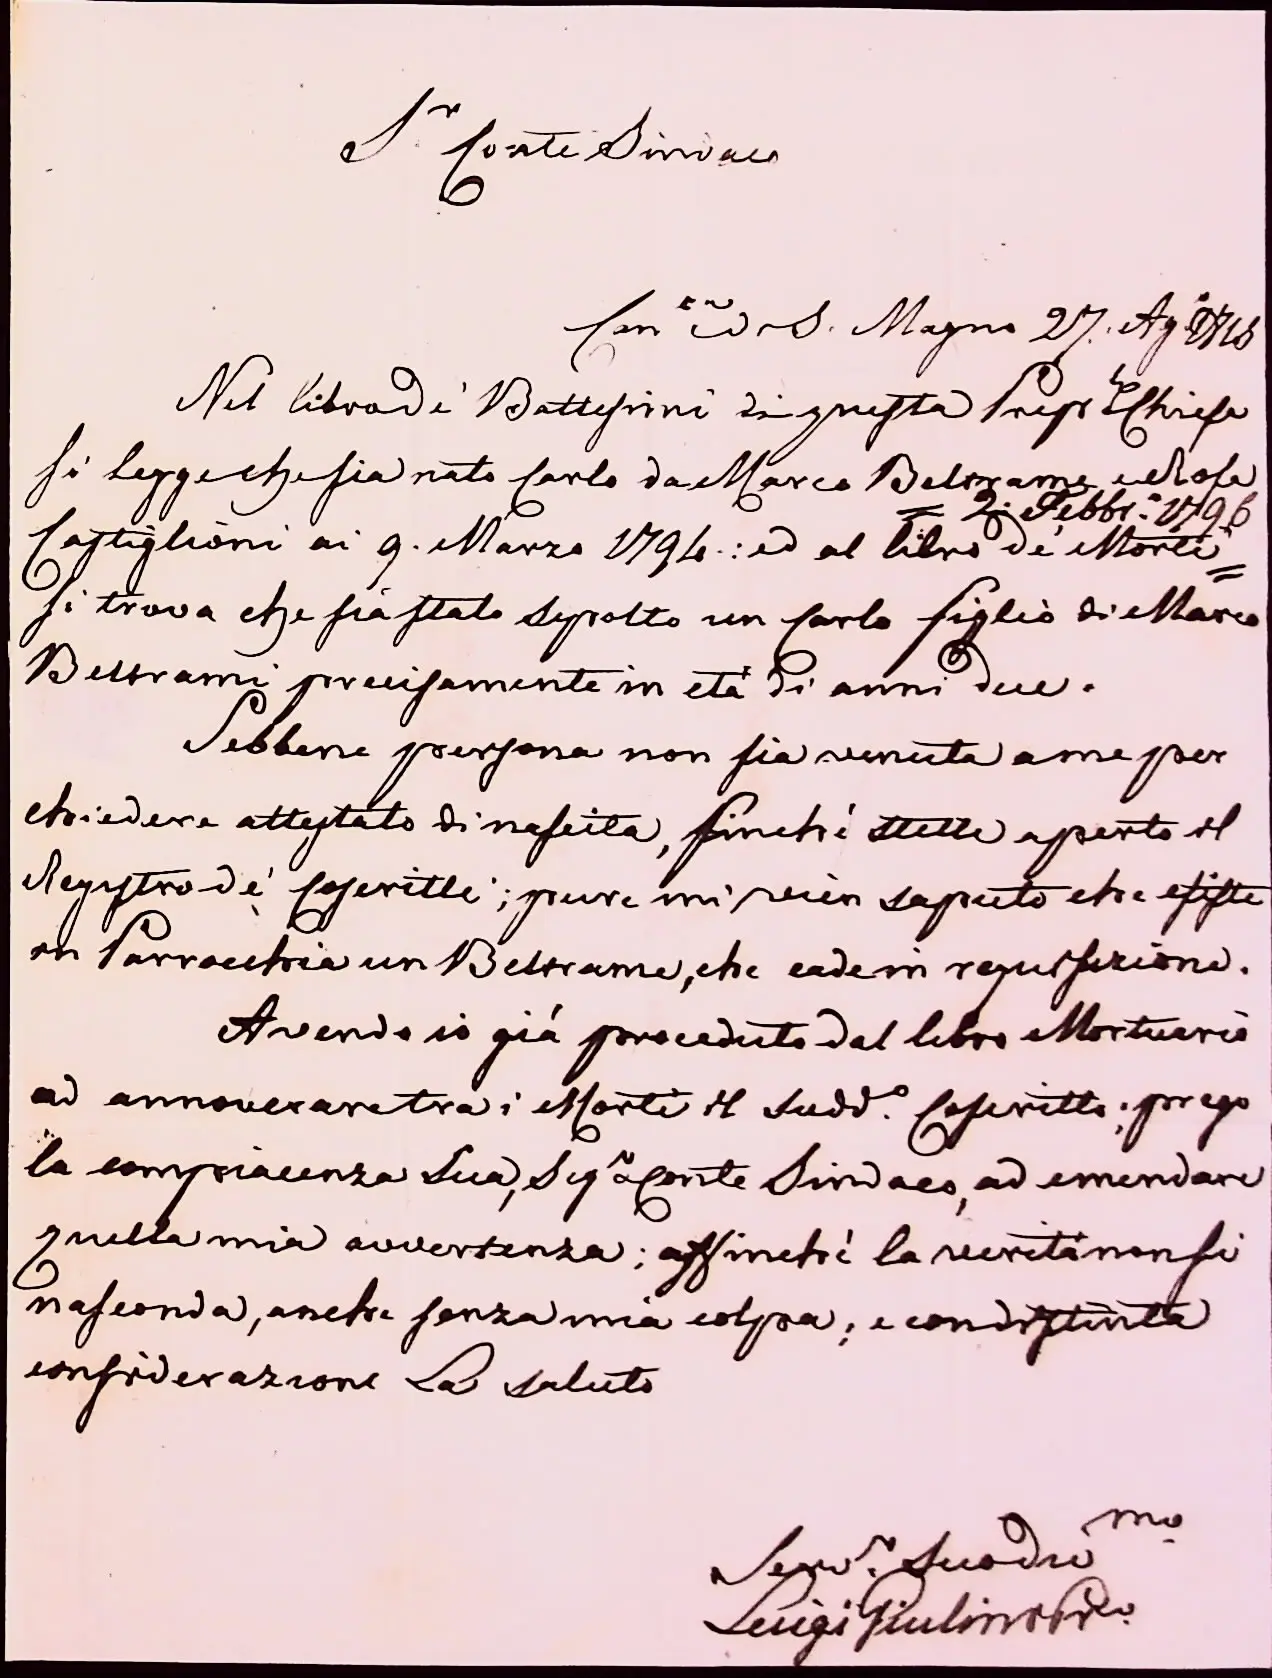 S.r Conte Sindaco
Can.ca di S. Magno 27. Ag.
Nel libro de' Battesimi di questa Prep.le Chiesa
si legge che sia nato Carlo da Marco Beltrame e Rosa
= 2. Febbr.o 1796
Castiglioni ai 9. Marzo 1794.: ed al libro de' Morti =
si trova che sia stato sepolto un Carlo figlio di Marco
Beltrami precisamente in età di anni due.
Sebbene persona non sia venuta a me per
chiedere attestato di nascita, finché stette aperto il
Registro de' Coscritti; pure mi vien saputo che esiste
in Parrocchia un Beltrame, che cade in requisizione.
Avendo io già proceduto dal libro Mortuario
ad annoverare tra i Morti il sudd.o Coscritto; prego
la compiacenza Sua, Sig.r Conte Sindaco, ad emendare
quella mia avvertenza; affinché la verità non si
nasconda, anche senza mia colpa; e con distinta
considerazione La saluto
Serv.
Luigi Giulini